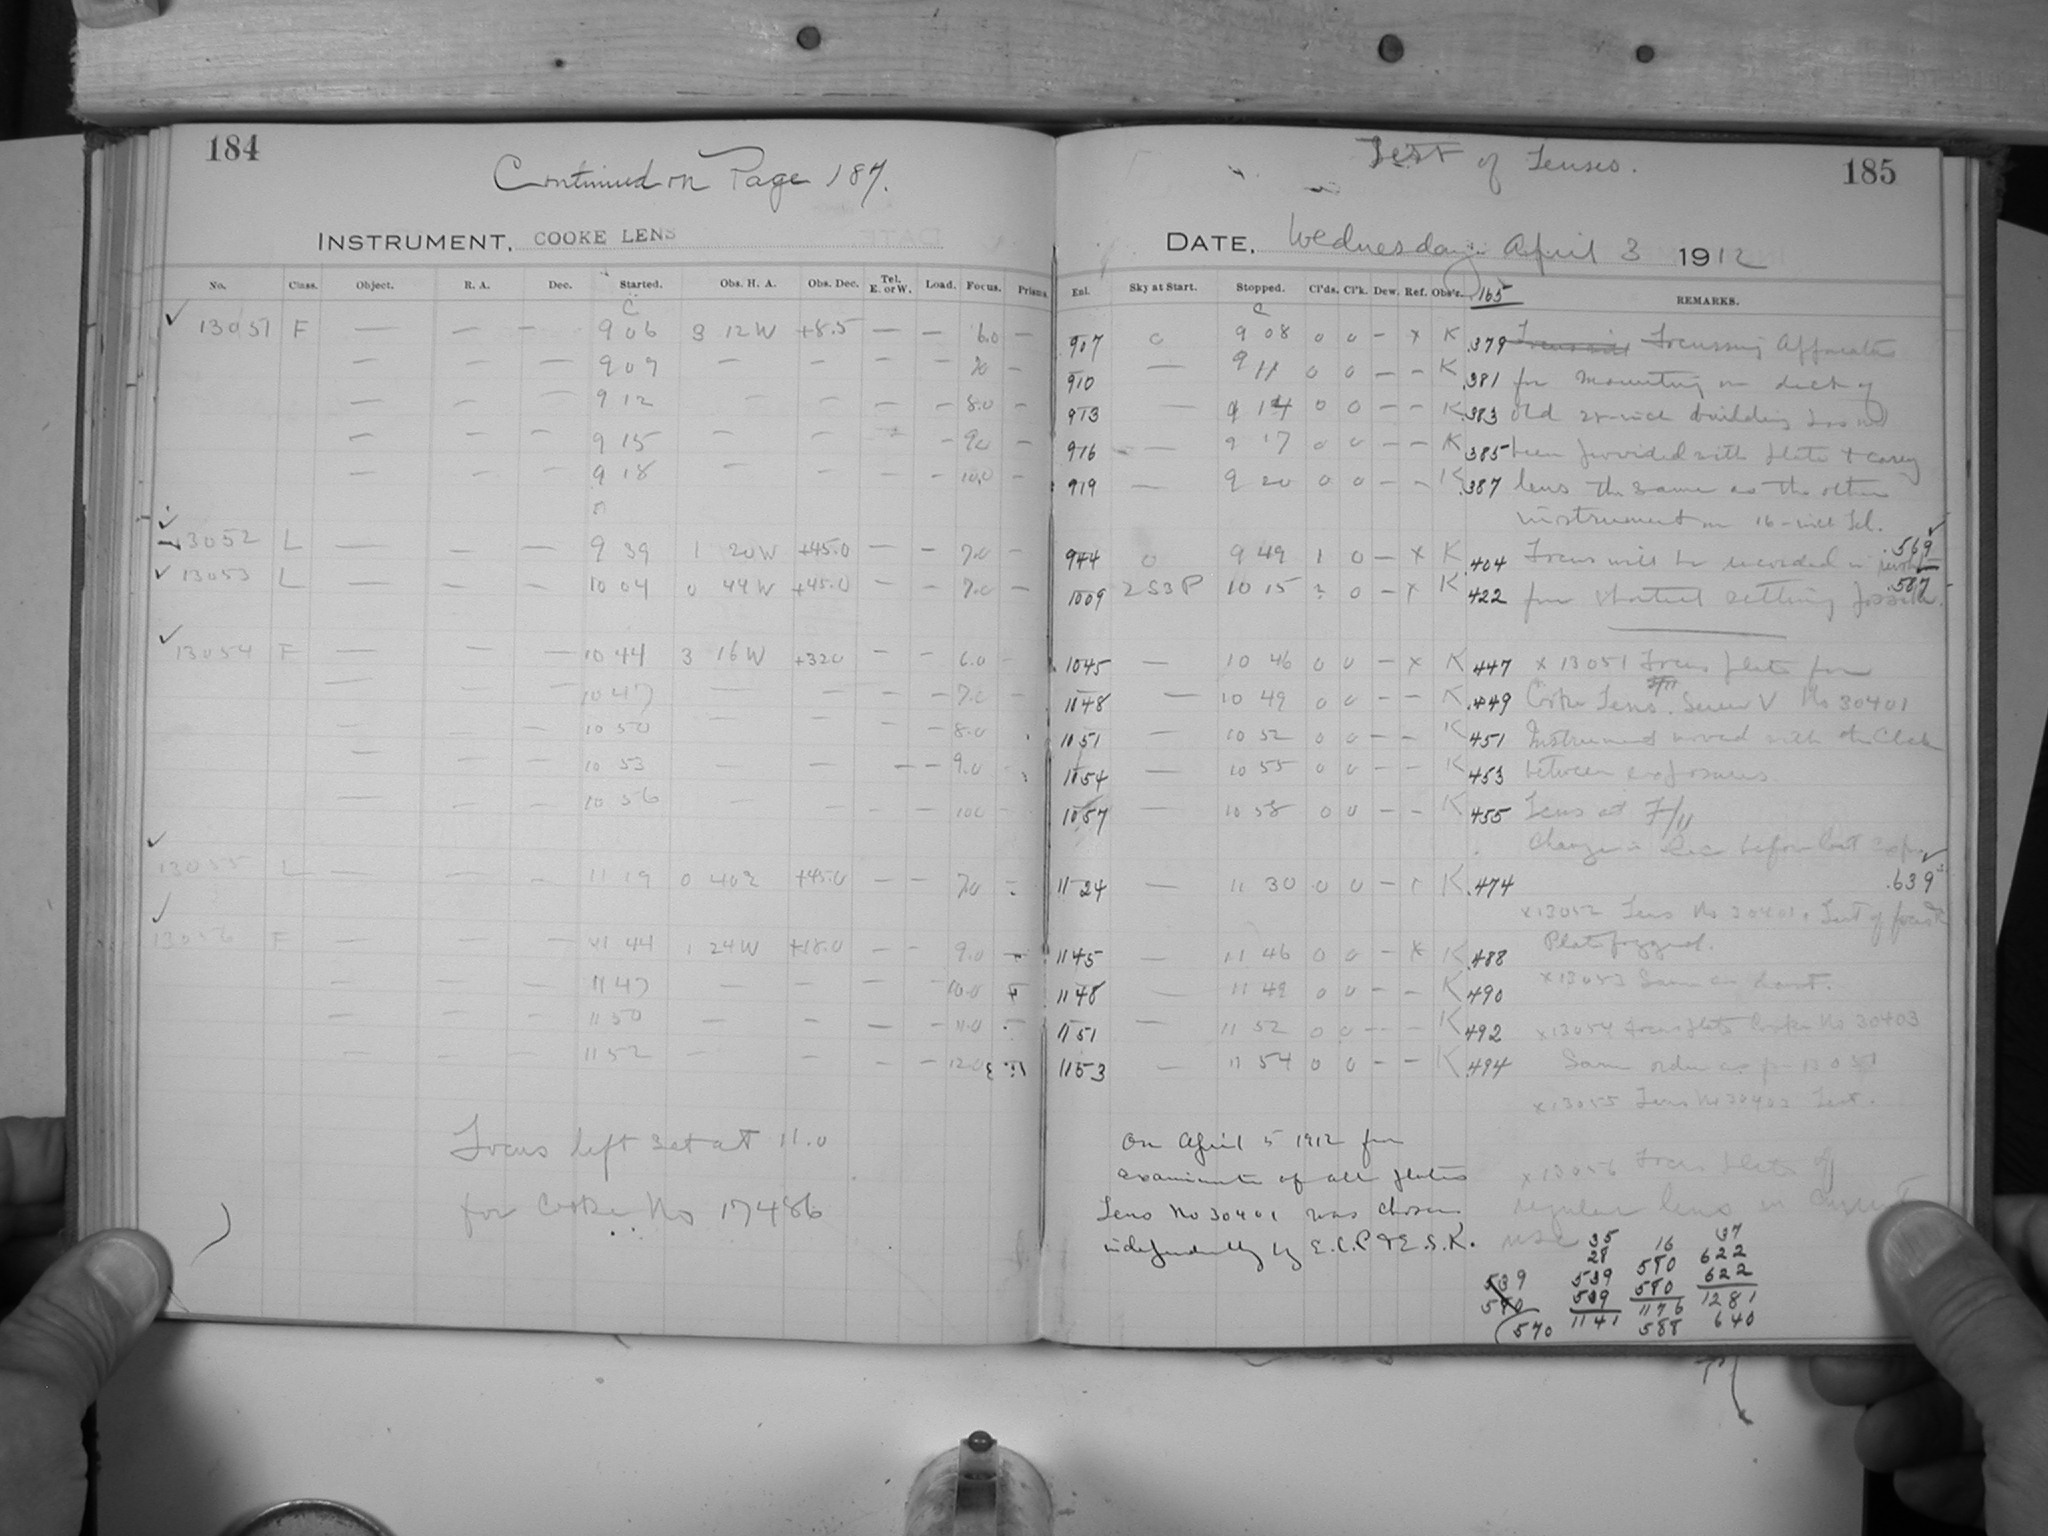 184
Continued on Page 187.
INSTRUMENT. COOKE LENS
No. Class. Object. R. A. Dec. Started. Obs. H. A. Obs. Dec. Tel. E. or W. Load. Focus. Prisms
C
13051 F — — — 9 06 3 12 W +8.5 — — 6.0 —
— — — 9 09 — — — — 70 —
— — — 9 12 — — — — 8.0 —
— — — 9 15 — — — — 9.0 —
— — — 9 18 — — — — 10.0 —
13052 L — — — 9 39 1 20 W +45.0 — — 7.0 —
13053 L — — — 10 04 0 44 W +45.0 — — 7.0 —
13054 F — — — 10 44 3 16 W +32.0 — — 6.0 —
— — — 10 47 — — — — 7.0 —
— — — 10 50 — — — — 8.0
— — — 10 53 — — — — 9.0
— — — 10 56 — — 10.0
13055 L — — — 11 19 0 40 +45.0 — — 7.0
13056 F — — — 11 44 1 24 W +18.0 — — 9.0
— — — 11 47 — — — — 10.0
— — — 11 50 — — — — 11.0
— — — 11 52 — — — 12.0
Focus left set at 11.0
for Cooke No 17486
Test of Lenses.
185
DATE. Wednesday April 3 1912
Enl. Sky at Start. Stopped. Cl'ds. Cl'k. Dew. Ref. Obs'r. .165 REMARKS.
C
907 0 9 08 0 0 — x K .379 Focussing Apparatus
910 — 9 11 0 0 — — K .381 for mounting on deck of
913 — 9 14 0 0 — — K .383 old building has
916 — 9 17 0 0 — — K .385 been provided with plate &
919 — 9 20 0 0 — — K .387 lens the same as the other
instrument on 16-inch Tel.
944 0 9 49 1 0 — x K .404 Focus will be recorded in .569
1009 2S3P 10 15 2 0 — x K .422 for shortest setting possible. .587
1045 — 10 46 0 0 — x K .447 x 13051 Focus plate for
1048 — 10 49 0 0 — — K .449 Cooke Lens. Series V No 30401
1051 — 10 52 0 0 — — K .451 Instrument moved with
1054 — 10 55 0 0 — — K .453 between exposures.
1057 — 10 58 0 0 — — K .455 Lens at F/11
Change in Dec before last
1124 — 11 30 0 0 — K .474 .639
x13052 Lens No 30401. Test of focus
Plate fogged.
1145 — 11 46 0 0 — x K .488
x13053 Same as last.
1148 — 11 49 0 0 — — K .490
1151 — 11 52 0 0 — — K .492 x13054 Focus plate Cooke No 30403
1153 — 11 54 0 0 — — K .494 Same order as for 13051
x13055 Lens No 30403 Test.
On April 5 1912 from
of all plates
Lens No 30401 was chosen
independently by E.C.P & E.S.K.
x13056 Focus plate of
regular lens in current
use
35 16 37
28 580 622
539 539 580 622
580 1176 1281
570 1141 588 640